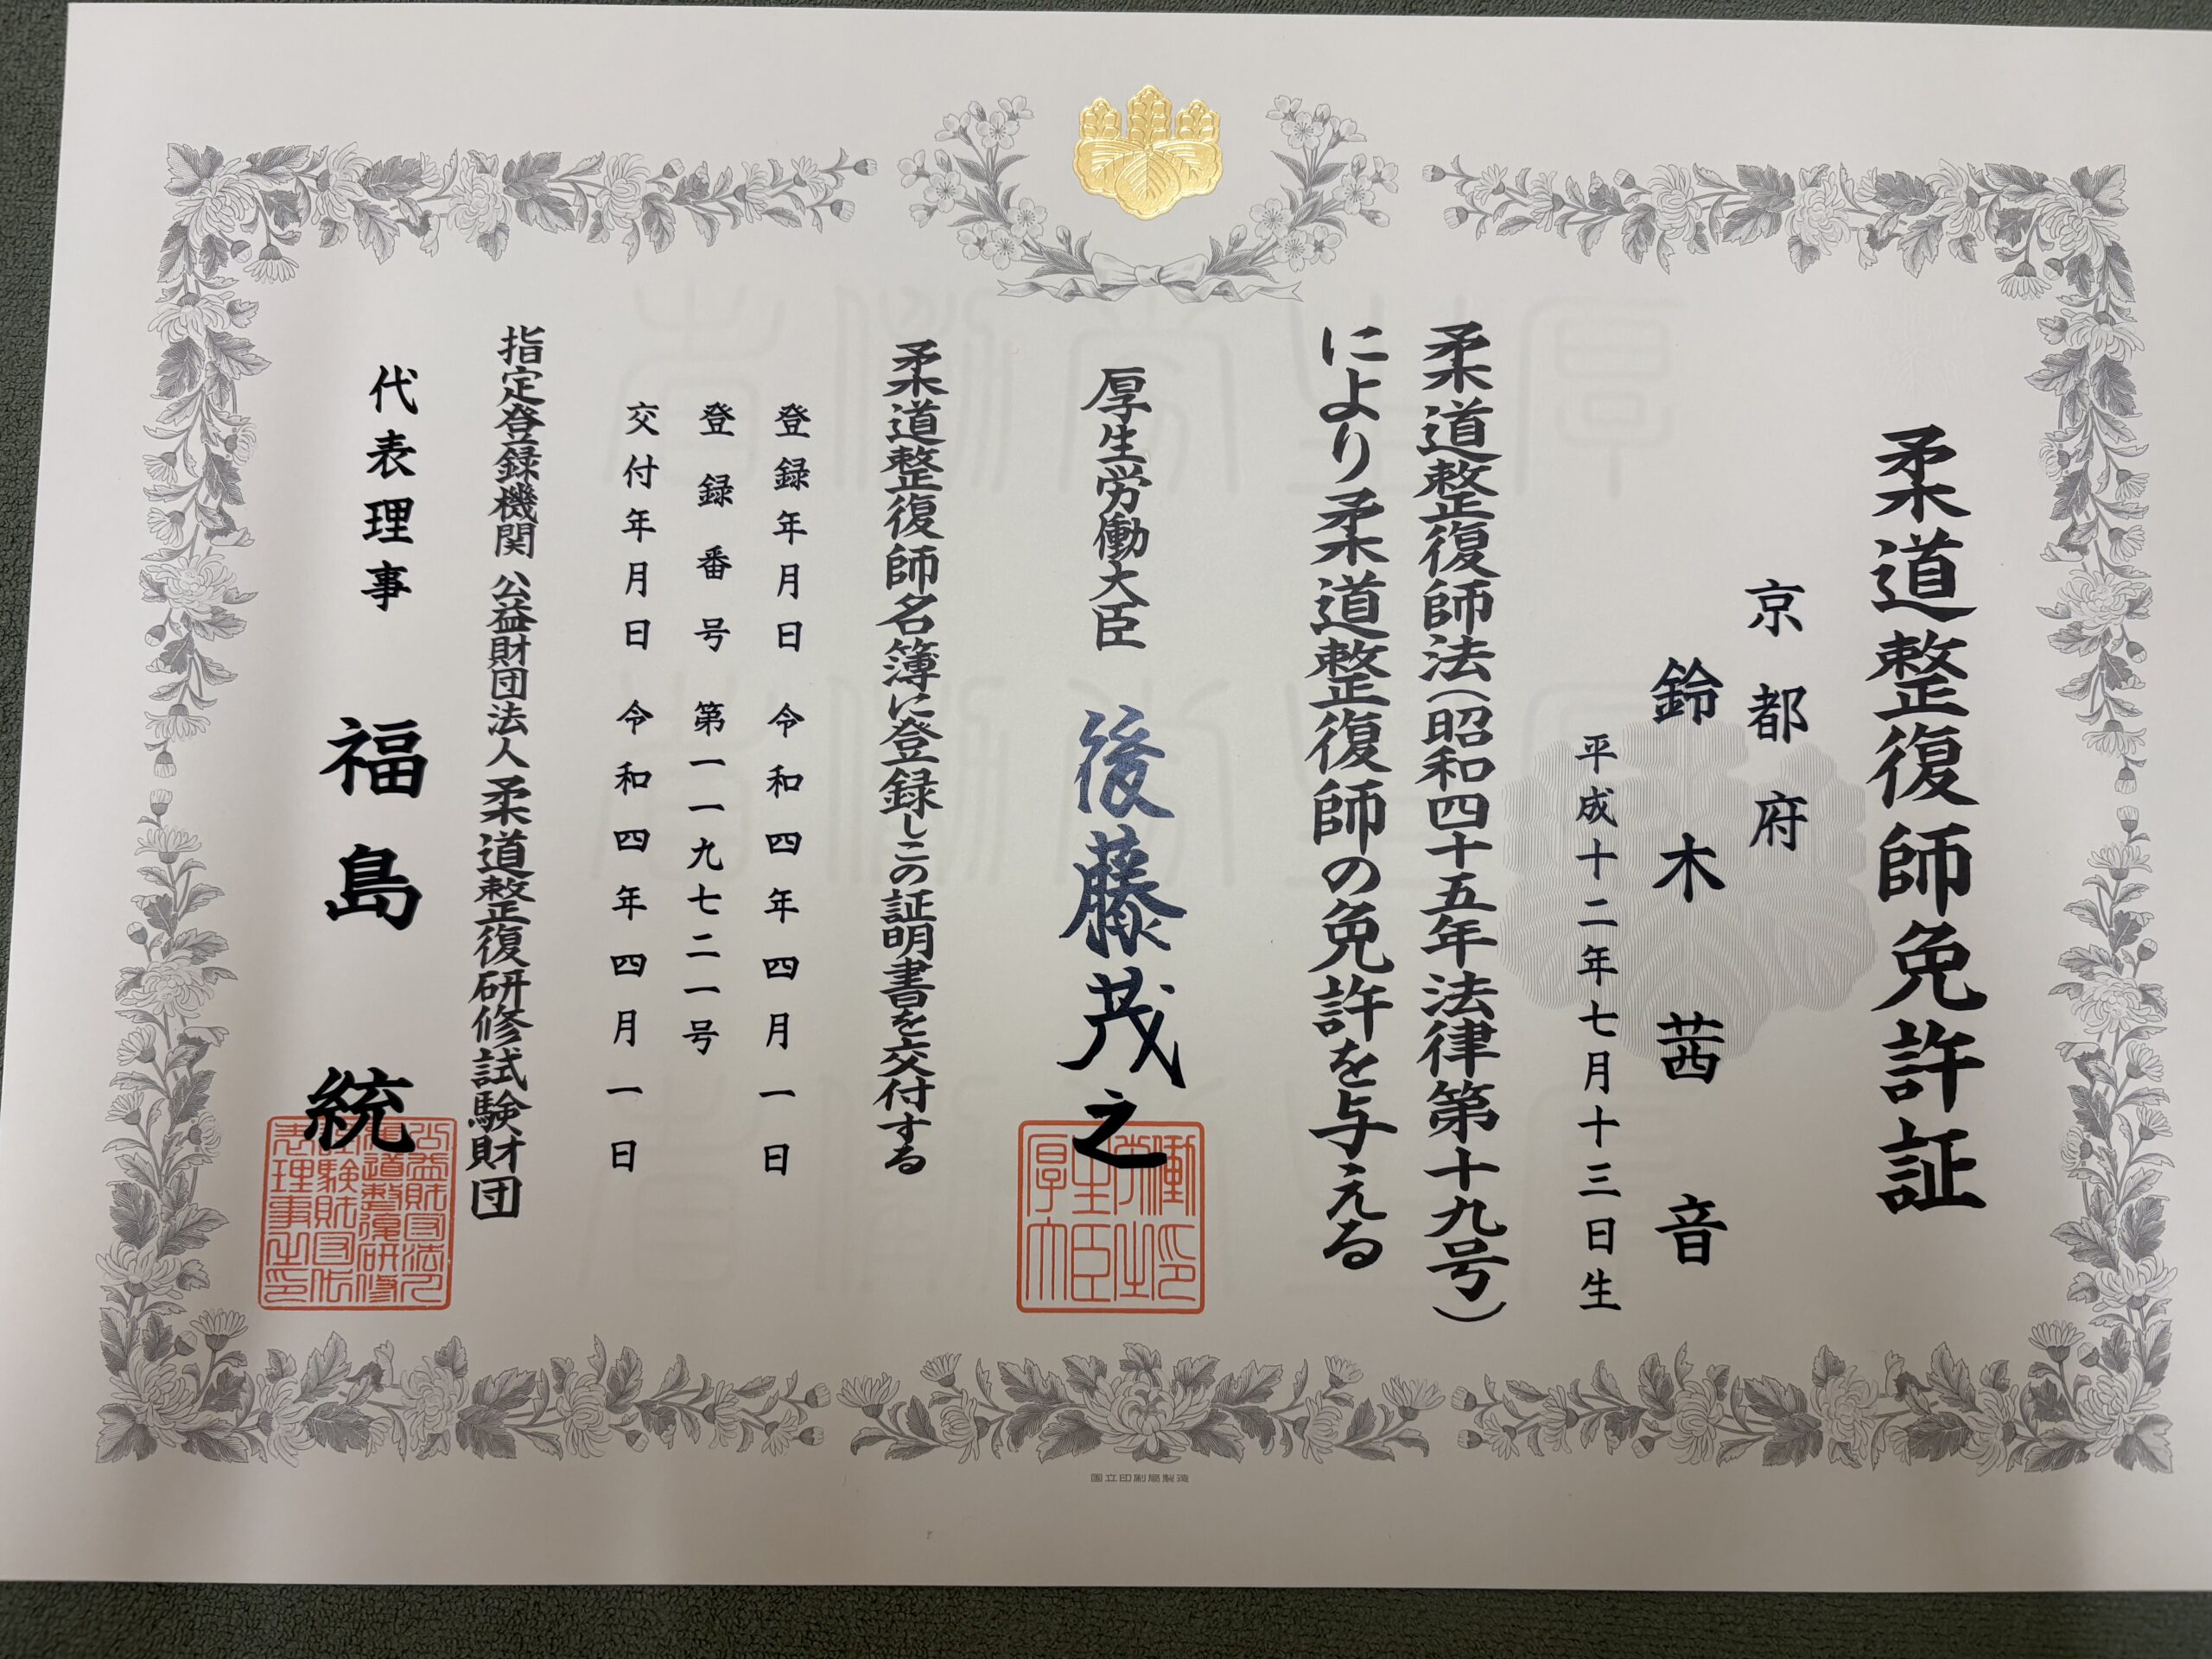 柔道整復師免許証
京都府
鈴木茜音
平成十二年七月十三日生
柔道整復師法（昭和四十五年法律第十九号）
により柔道整復師の免許を与える
厚生労働大臣 後藤茂之
柔道整復師名簿に登録しこの証明書を交付する
登録年月日 令和四年四月一日
登録番号 第一一九七二一号
交付年月日 令和四年四月一日
指定登録機関 公益財団法人 柔道整復研修試験財団
代表理事 福島統
国立印刷局製造